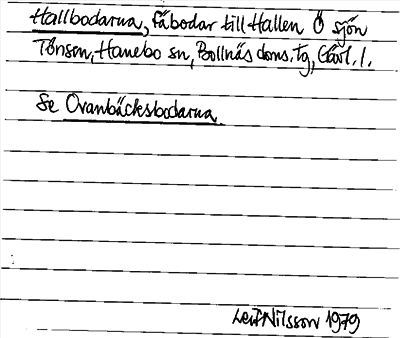 Hallbodarna, fäbodar till Hallen Ö sjön
Tönsen, Hanebo sn, Bollnäs doms. tg, Gävl. l.
Se Ovanbäcksbodarna.
Leif Nilsson 1979